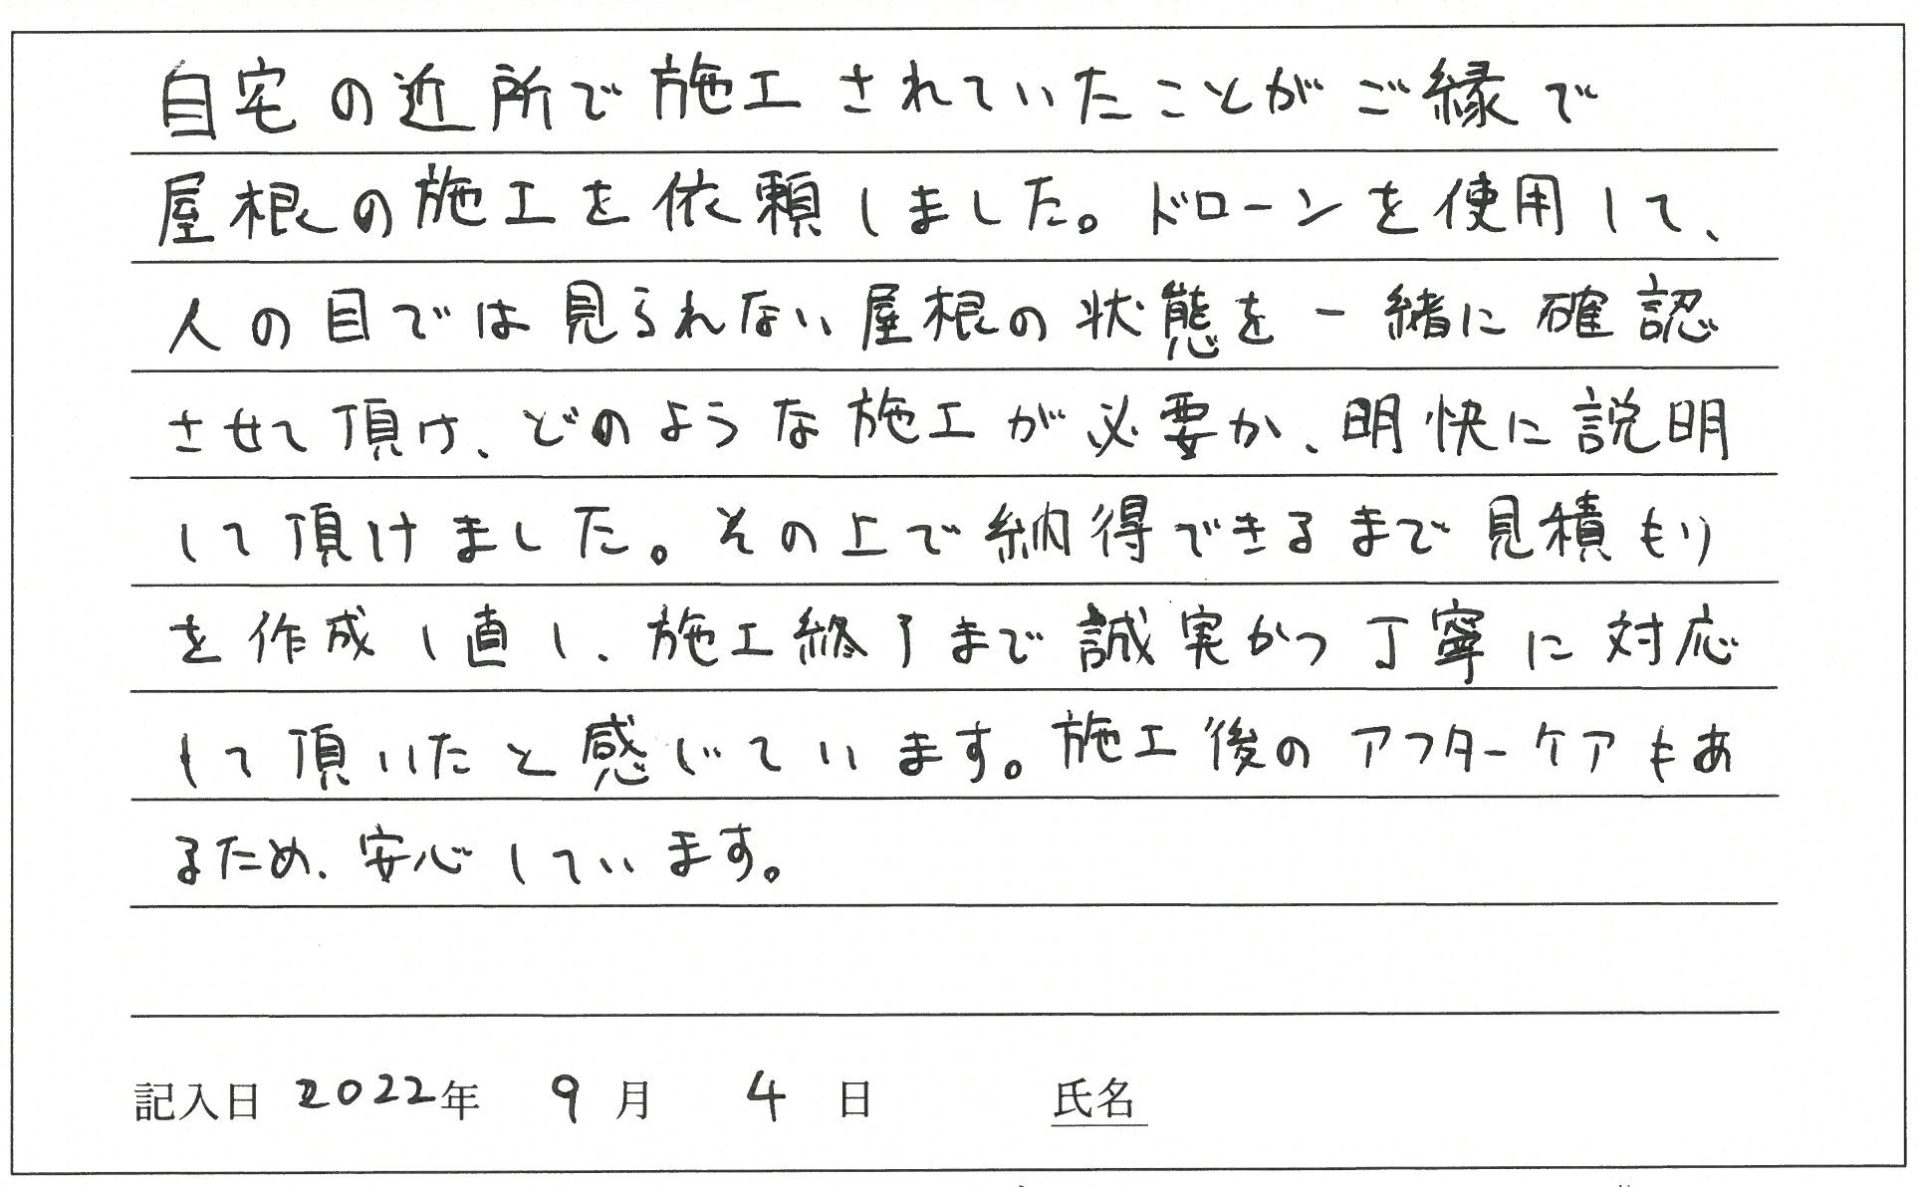 自宅の近所で施工されていたことがご縁で
屋根の施工を依頼しました。ドローンを使用して、
人の目では見られない屋根の状態を一緒に確認
させて頂け、どのような施工が必要か、明快に説明
して頂けました。その上で納得できるまで見積もり
を作成し直し、施工終了まで誠実かつ丁寧に対応
して頂いたと感じています。施工後のアフターケアもあ
るため、安心しています。
記入日 2022年 9月 4日 氏名